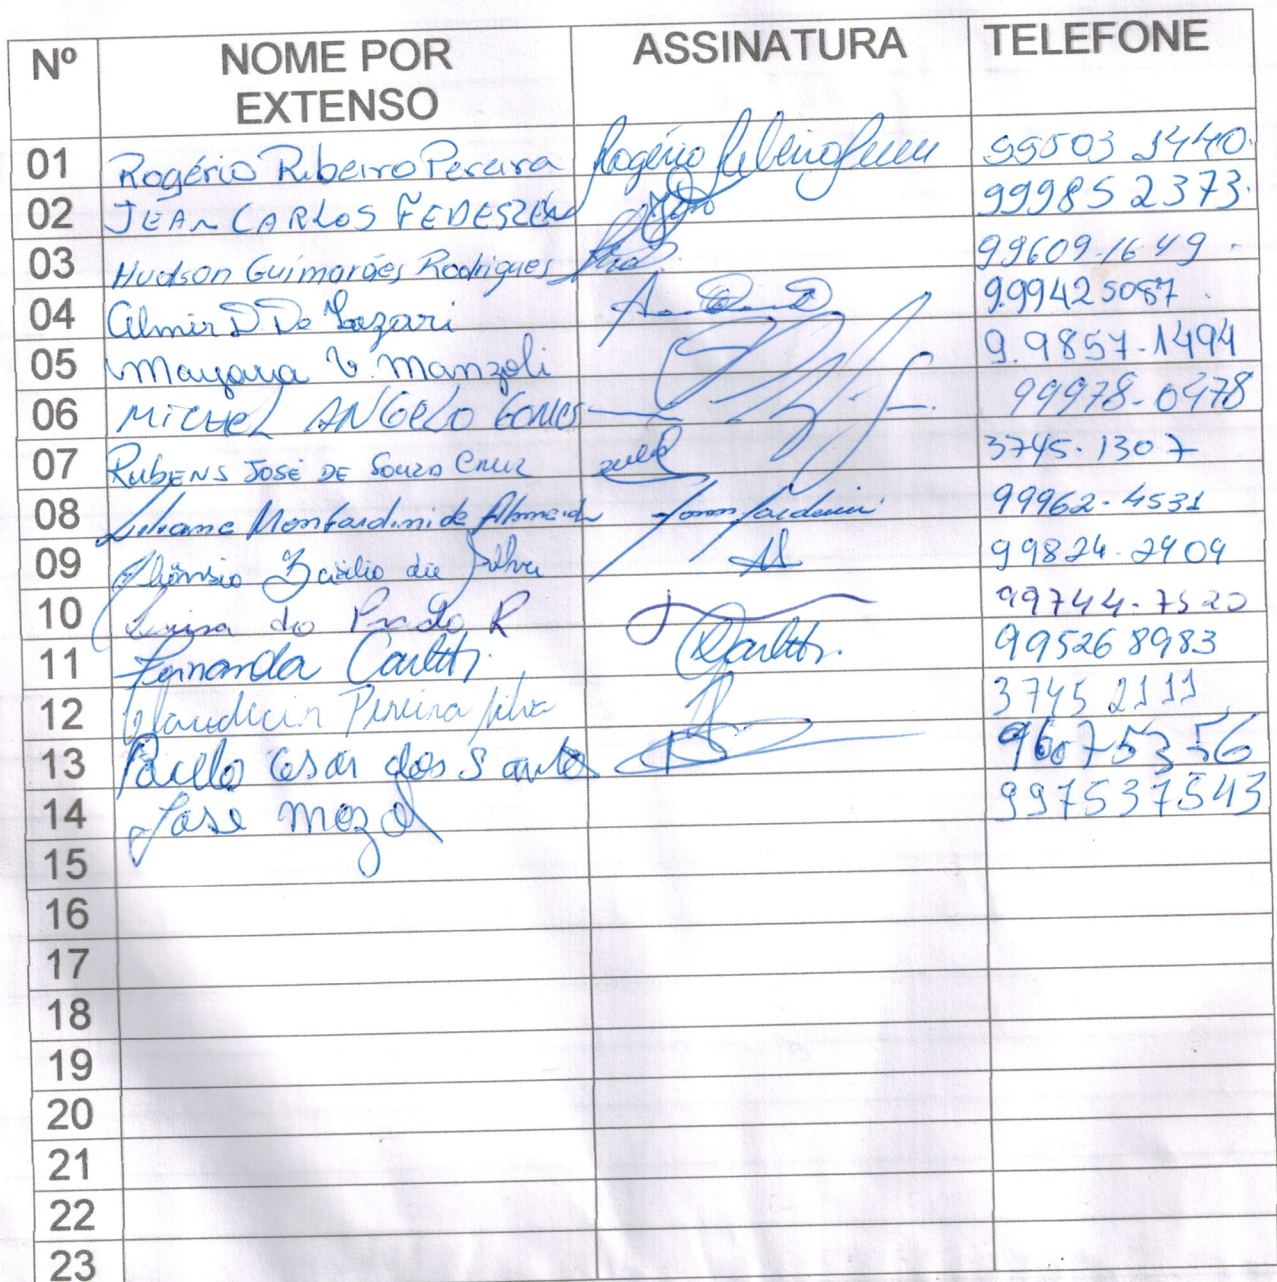 Nº NOME POR EXTENSO ASSINATURA TELEFONE
01 Rogério Ribeiro Pereira Rogério Ribeiro 99503 1440.
02 JEAN CARLOS 99985 2373.
03 Hudson Guimarães Rodrigues 99609-1649.
04 Almir D. De Lazari 9.99425087.
05 Mayara V. Manzoli 9.9857-1494
06 MICHEL ANGELO GOMES 99978-0478
07 RUBENS JOSÉ DE SOUZA CRUZ 3745-1307
08 Liliane Monfardini de Almeida Monfardini 99962-4531
09 Basilio da Silva 99824-2909
10 do Prado R 99744-7520
11 Fernanda Carletti CCarletti. 995268983
12 Claudecir Pereira Silva 3745 2111
13 Paulo Cesar dos Santos 96075356
14 Jose 997537543
15
16
17
18
19
20
21
22
23